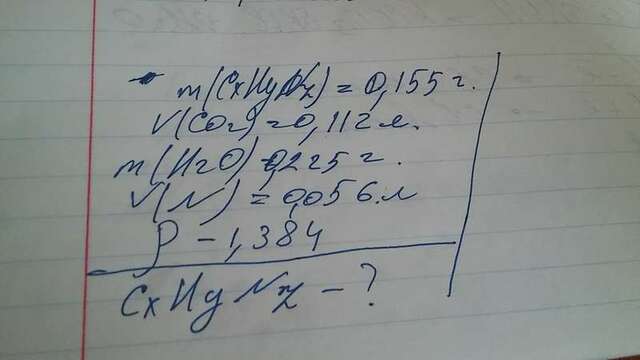 m(CxHyNz) = 0,155 г.
V(CO2) = 0,112 л.
m(H2O) 0,225 г.
V(N) = 0,056 л
ρ - 1,384
CxHyNz - ?